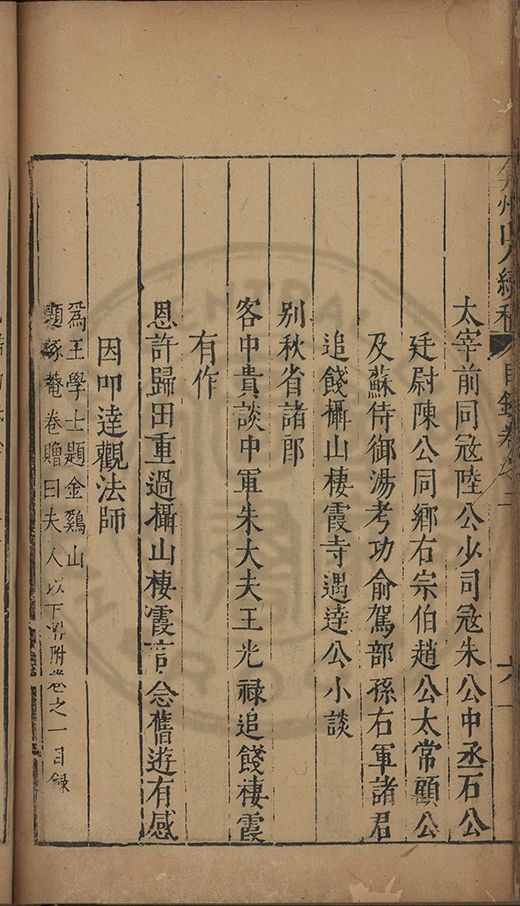 弇州山人續稿 目錄卷之二 六
太宰前同寇陸公少司寇朱公中丞石公
廷尉陳公同鄉右宗伯趙公太常顧公
及蘇侍御湯考功俞駕部孫右軍諸君
追餞攝山棲霞寺遇達公小談
別秋省諸郎
客中貴談中軍朱大夫王光祿追餞棲霞
有作
恩許歸田重過攝山棲霞言念舊遊有感
因叩達觀法師
爲王學士題金鷄山
題琢菴卷贈曰夫人以下當附卷之一目錄